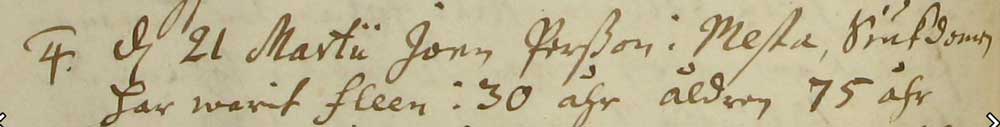 4. d 21 Martii Joen Perßon i Mesta, Siukdomen
har warit fleen i 30 åhr åldren 75 åhr